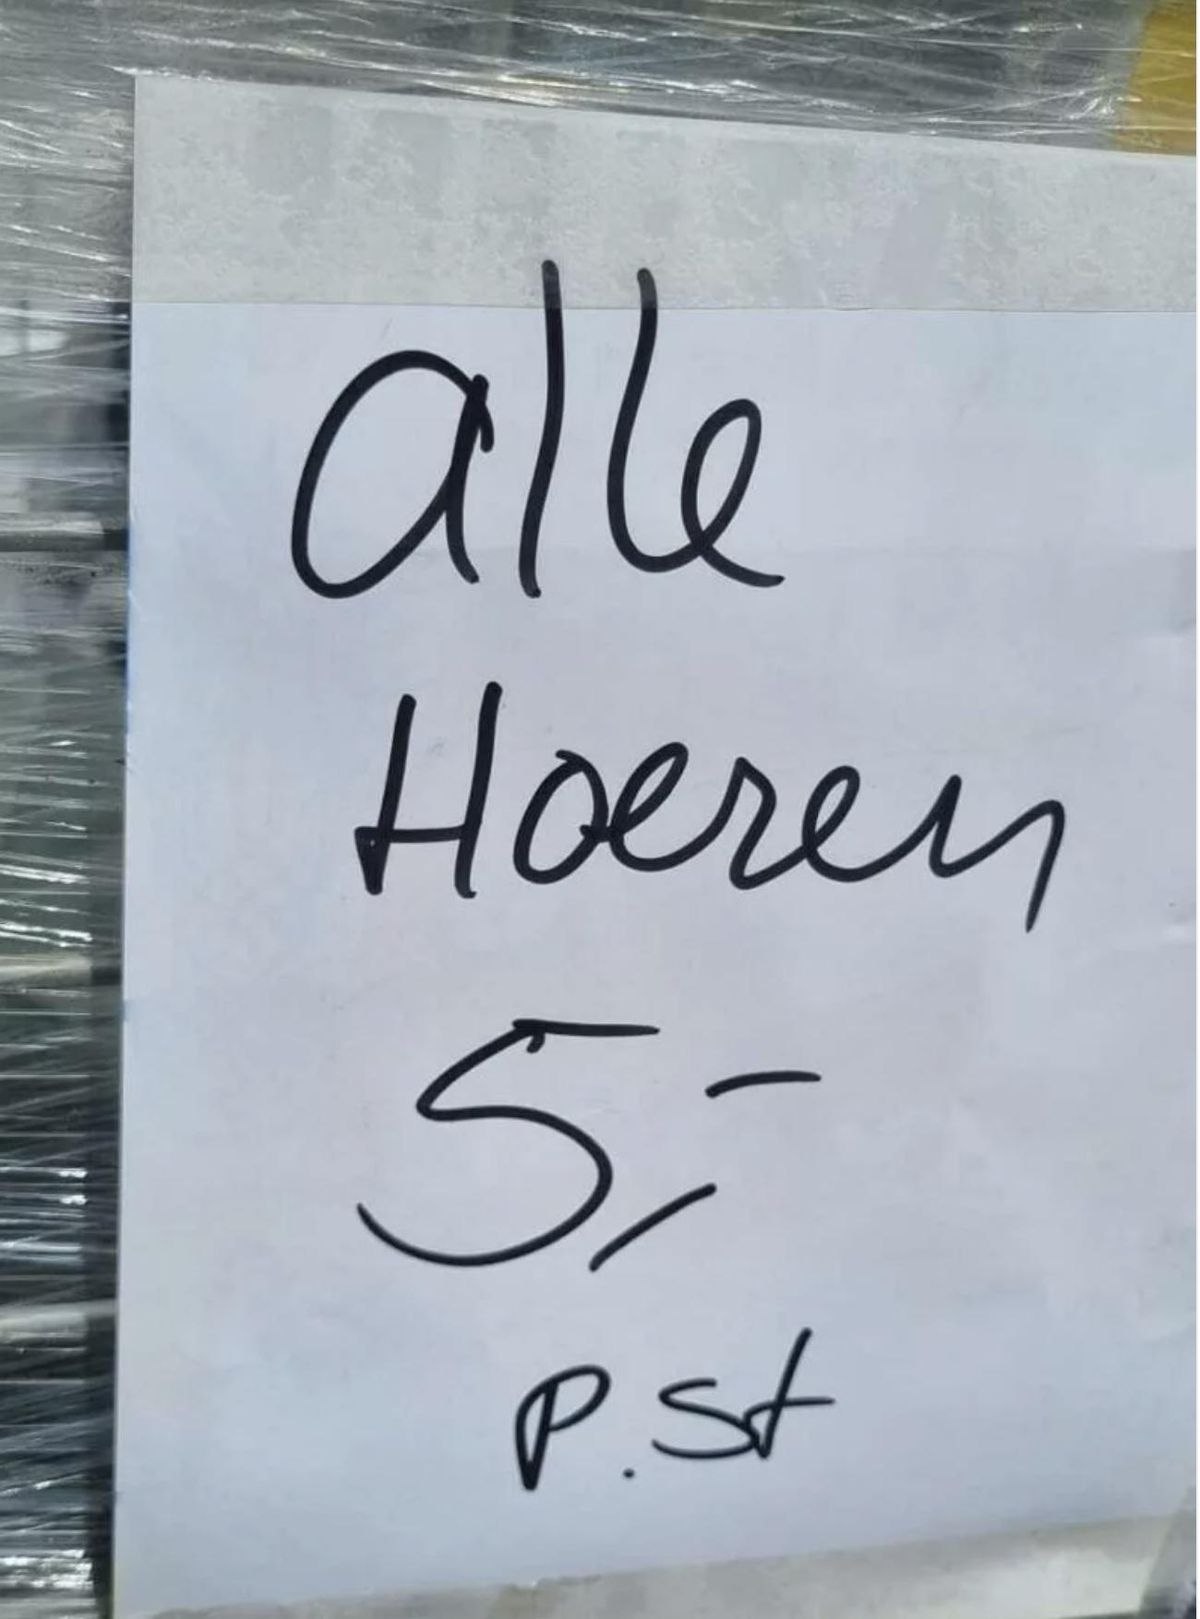 alle
Hoeren
5,-
p.st